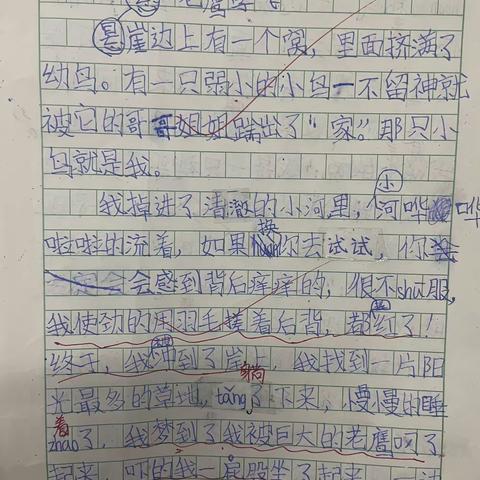 悬崖边上有一个窝，里面挤满了
幼鸟。有一只弱小的小鸟一不留神就
被它的哥哥姐姐踹出了“家”。那只小
鸟就是我。
我掉进了清澈的小河里，小河哗哗
啦啦的流着，如果换你去试试，你
会感到背后痒痒的，很不shū服，
我使劲的用羽毛搓着后背，都红了！
终于，我冲到了岸上，我找到一片阳
光最多的草地，tǎng躺了下来，慢慢的睡
zháo着了，我梦到了我被巨大的老鹰叼了
起来，吓的我一屁股坐了起来，一边